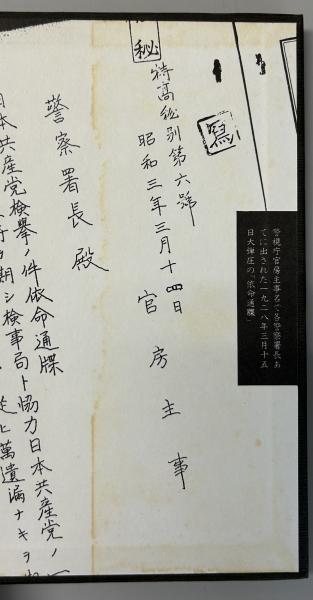 警視庁官房主事名で各警察署長あ
てに出された一九二八年三月十五
日大弾圧の「依命通牒」
秘
寫
特高秘別第六號
昭和三年三月十四日
官房主事
警察署長殿
日本共産党検擧ノ件依命通牒
期シ検事局ト協力日本共産党ノ一
萬遺漏ナキヲ